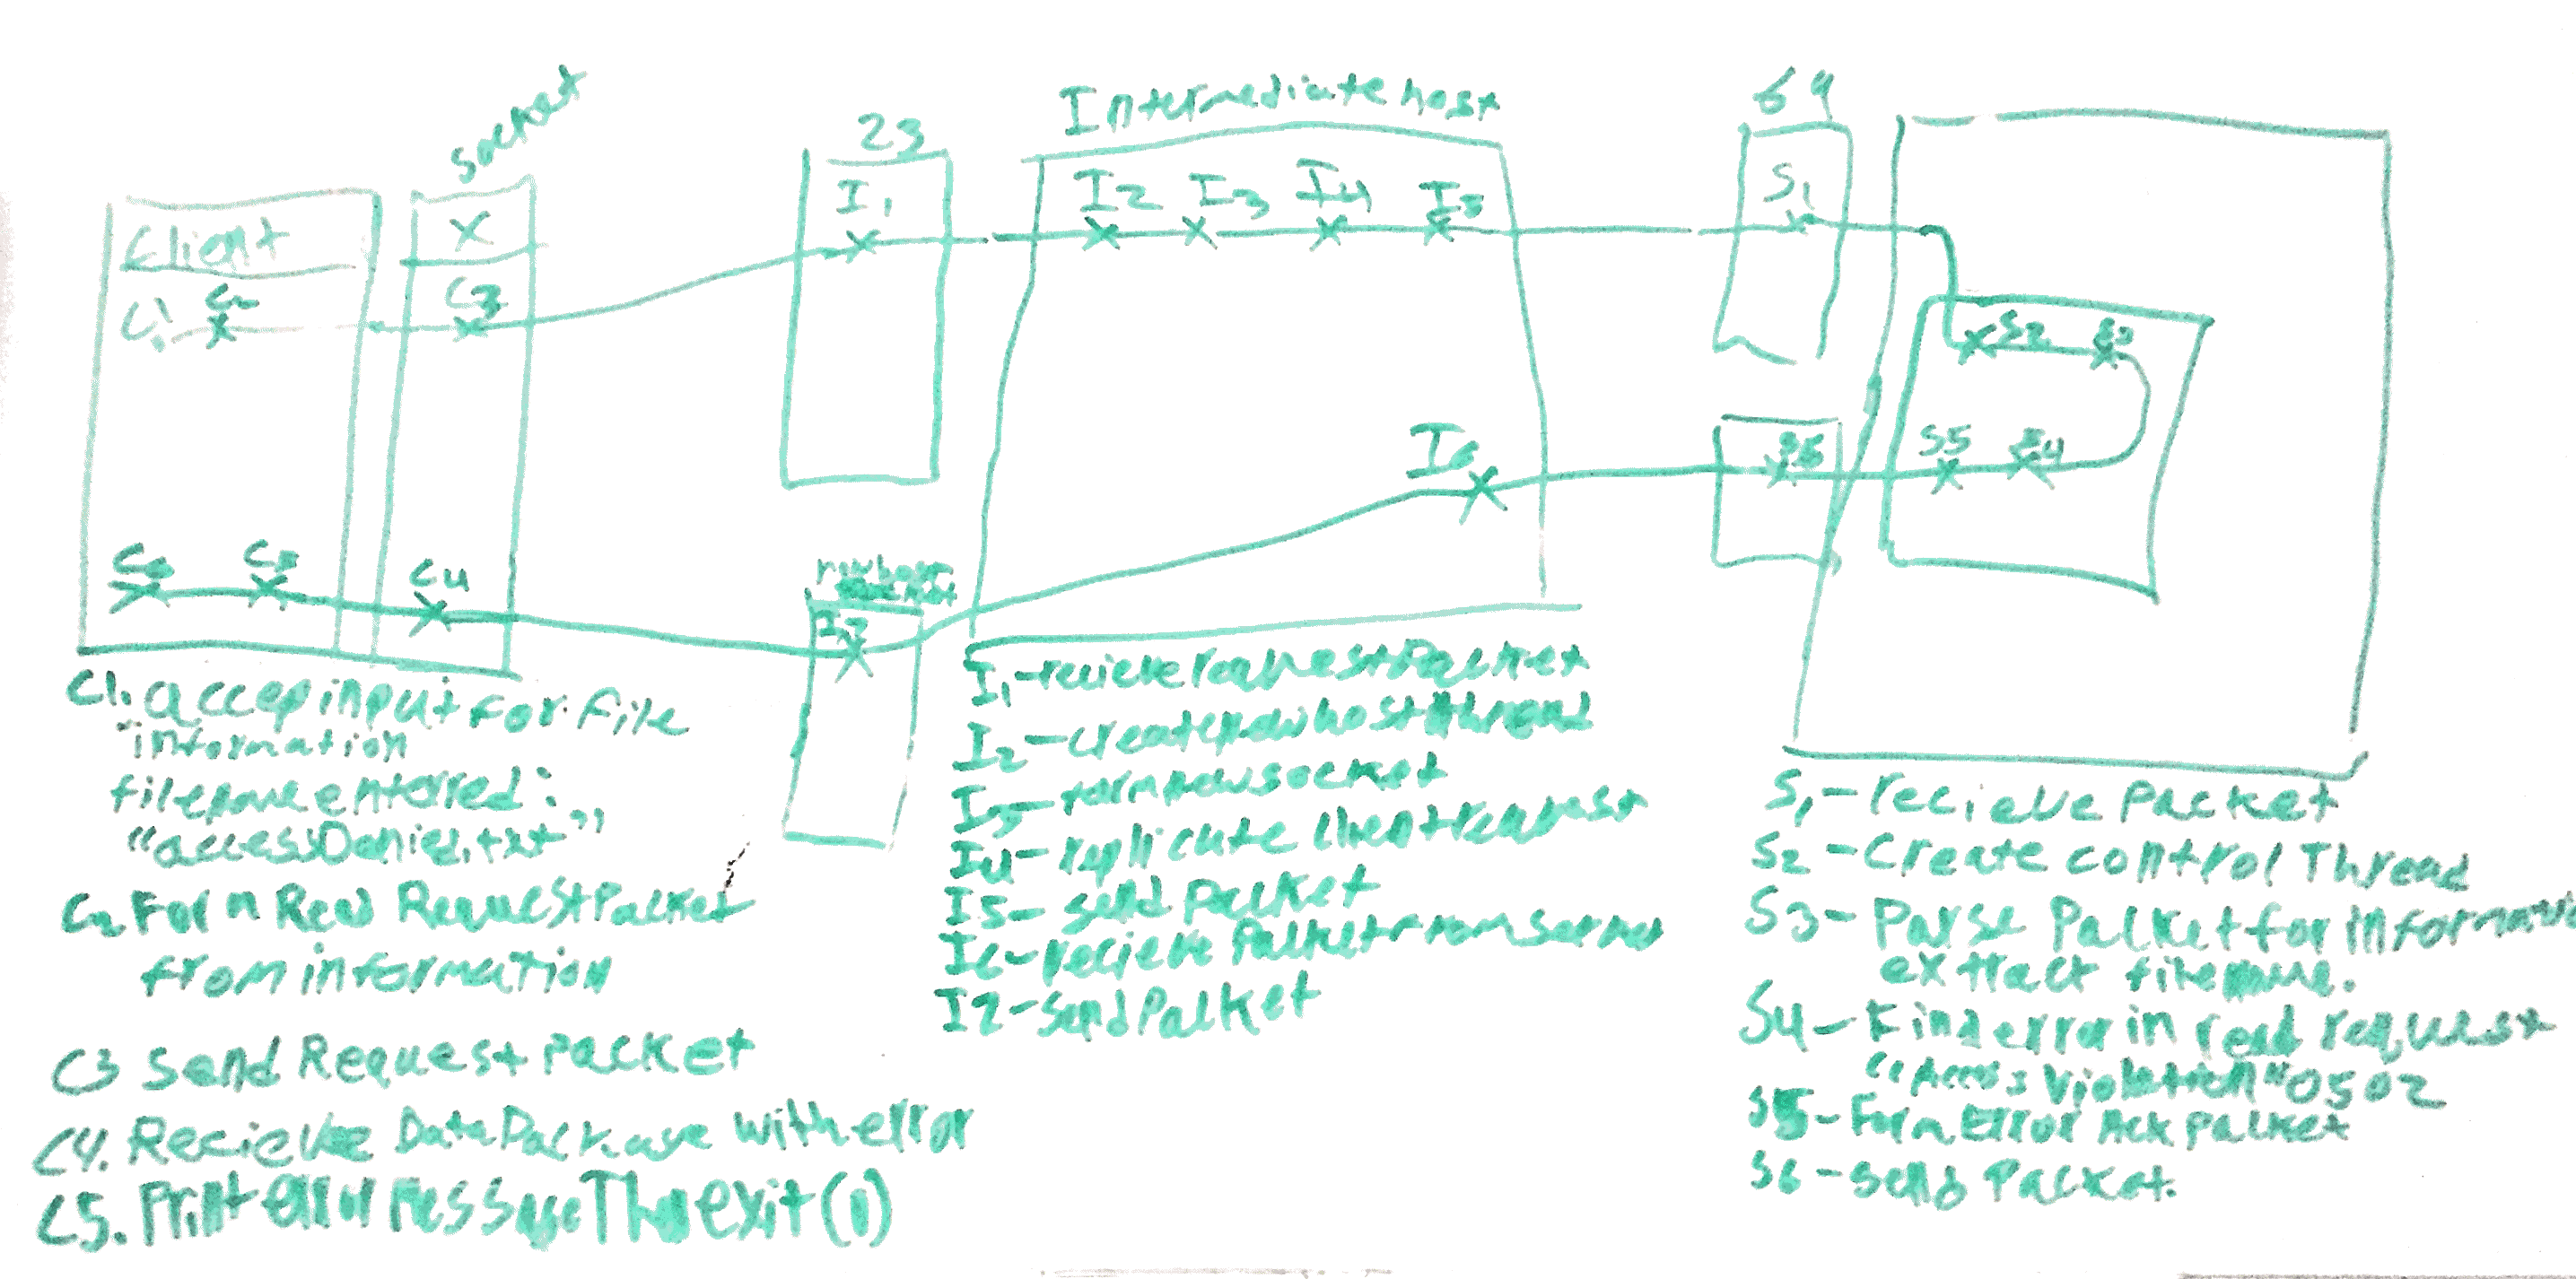 socket
23
Intermediate host
69
Client
X
I1
I2 I3 I4 I5
S1
C1 C2
C3
S2 S3
I6
S6
S5 S4
C6 C5
C4
I7
C1. accep input for file
information
filename enterred:
"accessDenied.txt"
C2. Form Read RequestPacket
from information
C3 Send Request packet
C4. Recieve DataPackage with error
C5. Print error message Then exit(1)
I1 - recieve requestPacket
I2 - create new host thread
I3 - form new socket
I4 - replicate client request
I5 - send packet
I6 - recieve Packet from server
I7 - send Packet
S1 - recieve packet
S2 - Create control Thread
S3 - Parse Packet for informati
extract filename.
S4 - Find error in read request
"Access Violation" 0502
S5 - Form Error Ack packet
S6 - send Packet.